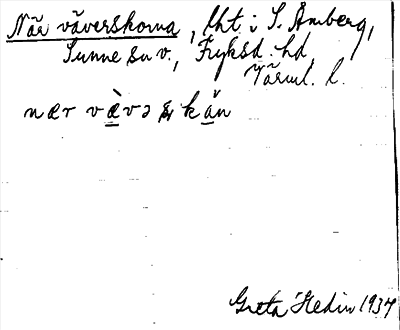 När väverskorna, lht i S. Åmberg,
Sunne sn v., Fryksd. hd
Värml. l.
nær væ̀və ʂkån
Greta Hedin 1937